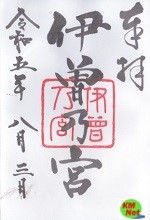 奉拝
伊曽乃宮
伊曽乃宮
令和五年八月三日
KM
Net